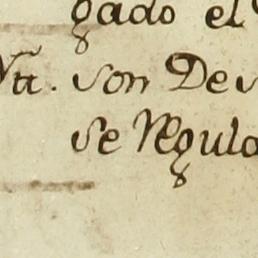 gado el
Va. son De
se Regula